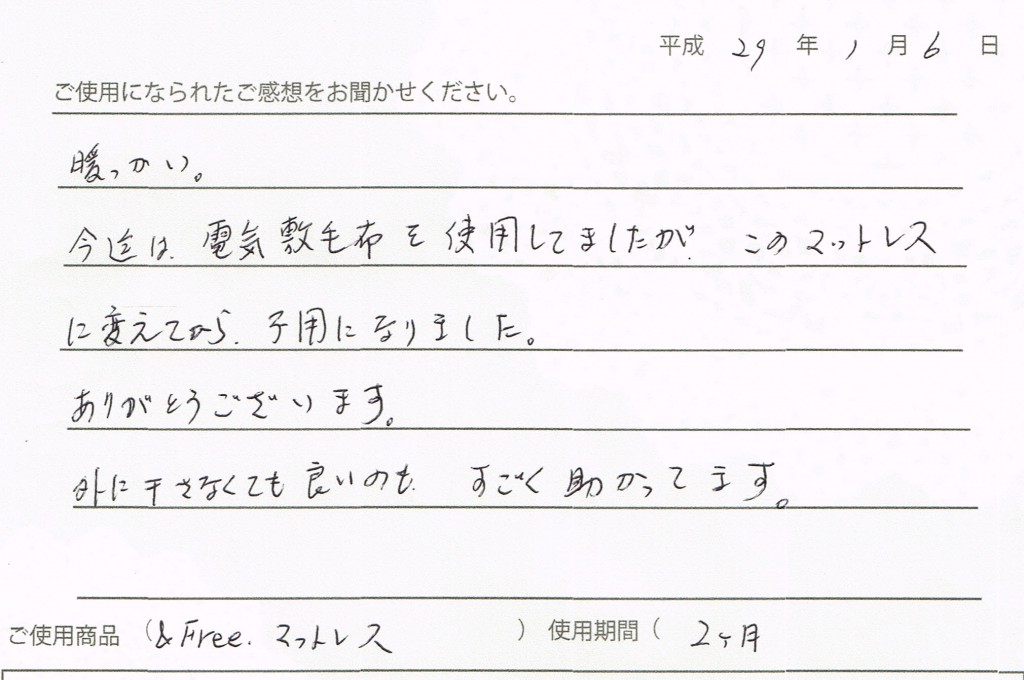 平成 29 年 1 月 6 日
ご使用になられたご感想をお聞かせください。
暖っかい。
今迄は、電気敷毛布を使用してましたが、このマットレス
に変えてから、子用になりました。
ありがとうございます。
外に干さなくても良いのも、すごく助かってます。
ご使用商品 (&Free. マットレス ) 使用期間 ( 2ヶ月